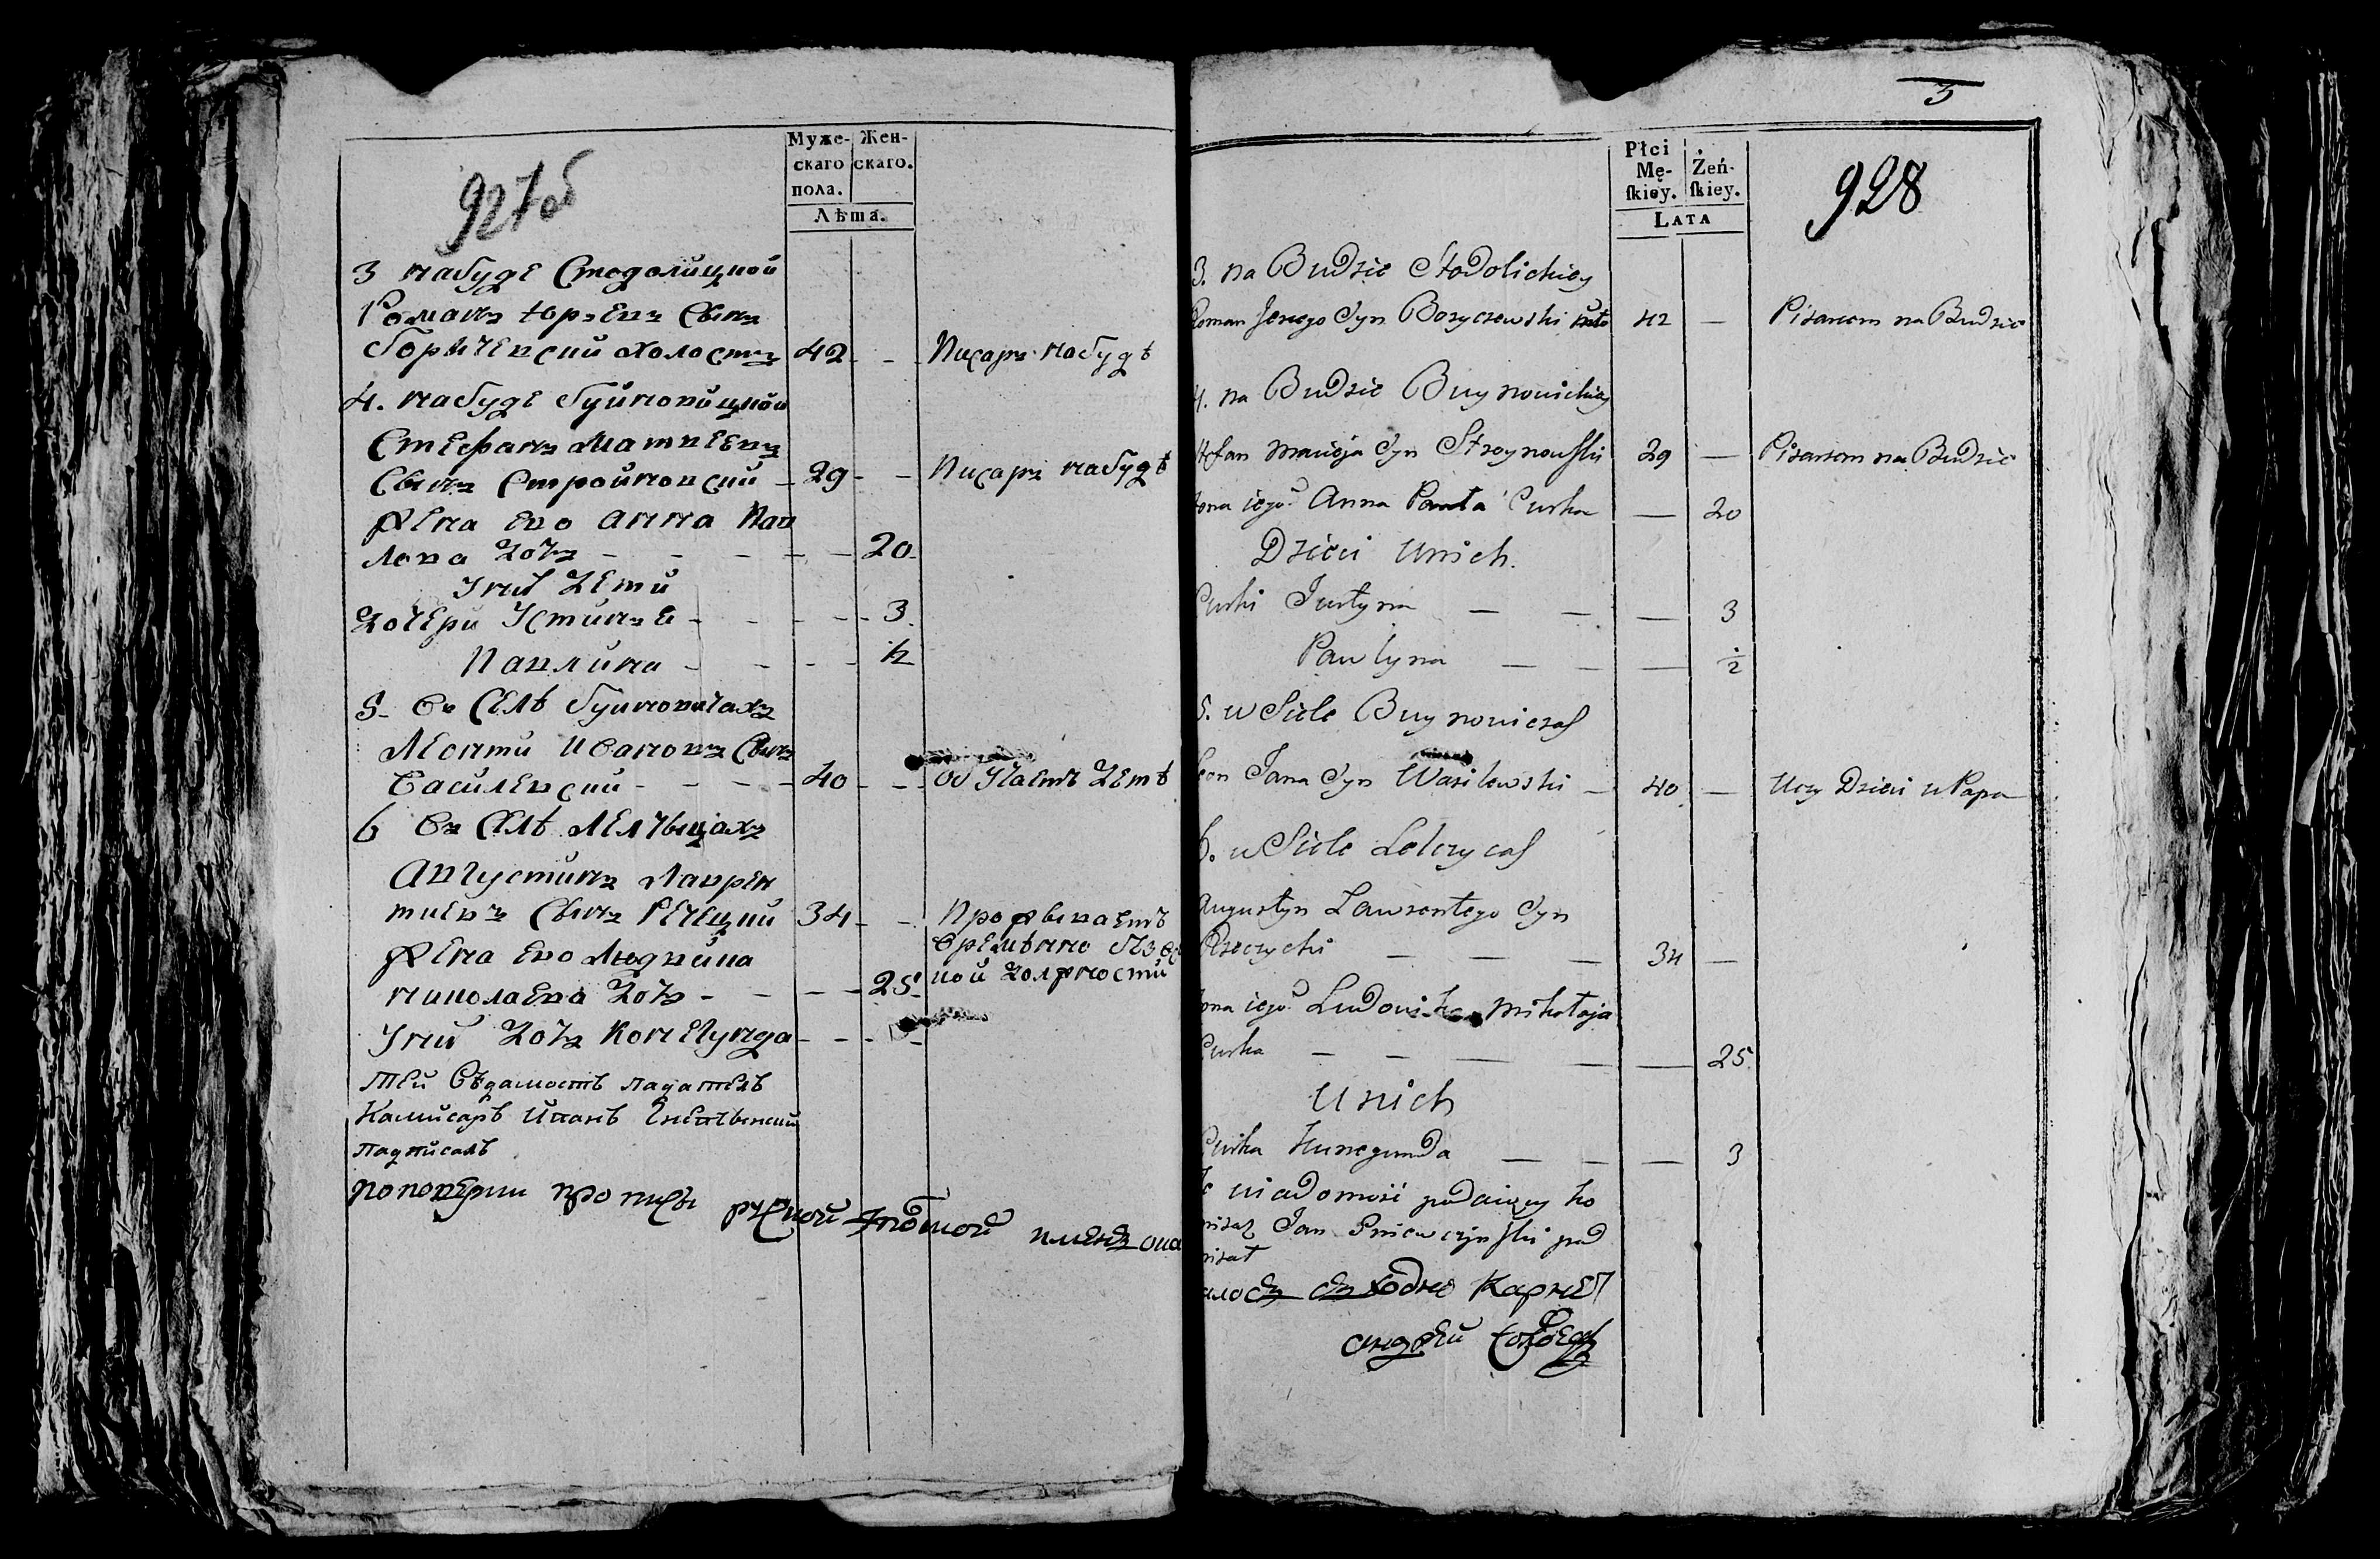 927об
Муже-
скаго
пола.
Жен-
скаго.
Лѣта.
3 на буде Стодолицкой
Романъ Юрьевъ Сынъ
Боричевский холостъ 42 - - Писаръ на будѣ
4. на буде Буйновицкой
Стефанъ Матвеевъ
Сынъ Стройновский - 29 - - Писаръ на будѣ
Жена ево Анна Пав
лова дочь - - - - - 20
У них дети
Дочери Устинья - - - - - 3
Павлина - - - - ½
5 - Въ Селѣ Буйновичахъ
Леонти Ивановъ Сынъ
Василевский - - - - 40 - - - Обучаетъ детѣ
6 Въ Селѣ Лелчыцахъ
Августинъ Лаврен
тиевъ Сынъ Речецкий 34 - - Проживаетъ
Жена ево Людвика времѣнно без
николаева дочь - - - - 25 кой должности
У них дочь Конегунда - - - -
Тей Вѣдамость падатель
Камисаръ Иванъ
падписалъ
3
Płci
Mę-
ſkiey.
Żeń-
ſkiey.
LATA
928
3. na Budzie Stodolickiey
Roman Jerzego Syn Boryczewski 42 — Pisarzem na Budzie
4. na Budzie Buynowickiey
Stefan Macieja Syn Stroynowski 29 — Pisarzem na Budzie
żona iego Anna Pawła Curka — 20
Dzieci Unich.
Curki Justyna — — — 3
Pawlyna — — — ½
5. w Siele Buynowiczaſ
Leon Jana Syn Wasilewski — 40 — Uczy Dzieci u Popa
6. w Siele Lelczycaſ
Augustyn Lawrentego Syn
Rzeczycki — — — 34 —
żona iego Ludowika Mikołaja
Curka — — — — — 25
Unich
Curka Kunegunda — — — 3
wiadomość podaiący ko
misaż Jan pod
pisał
Карнет
андрей